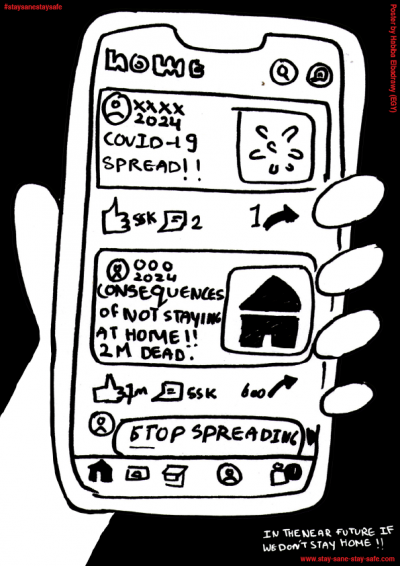 #stayxanestaysafe
Poster by Habiba Elbadrawy (EGY)
HOME
XXXX
2024
COVID-19
SPREAD!!
55K
2
1
OOO
2024
CONSEQUENCES
Of NOT STAYING
AT HOME!!
2M DEAD.
1M
55K
600
STOP SPREADING
IN THE NEAR FUTURE IF
WE DON'T STAY HOME !!
www.stay-sane-stay-safe.com